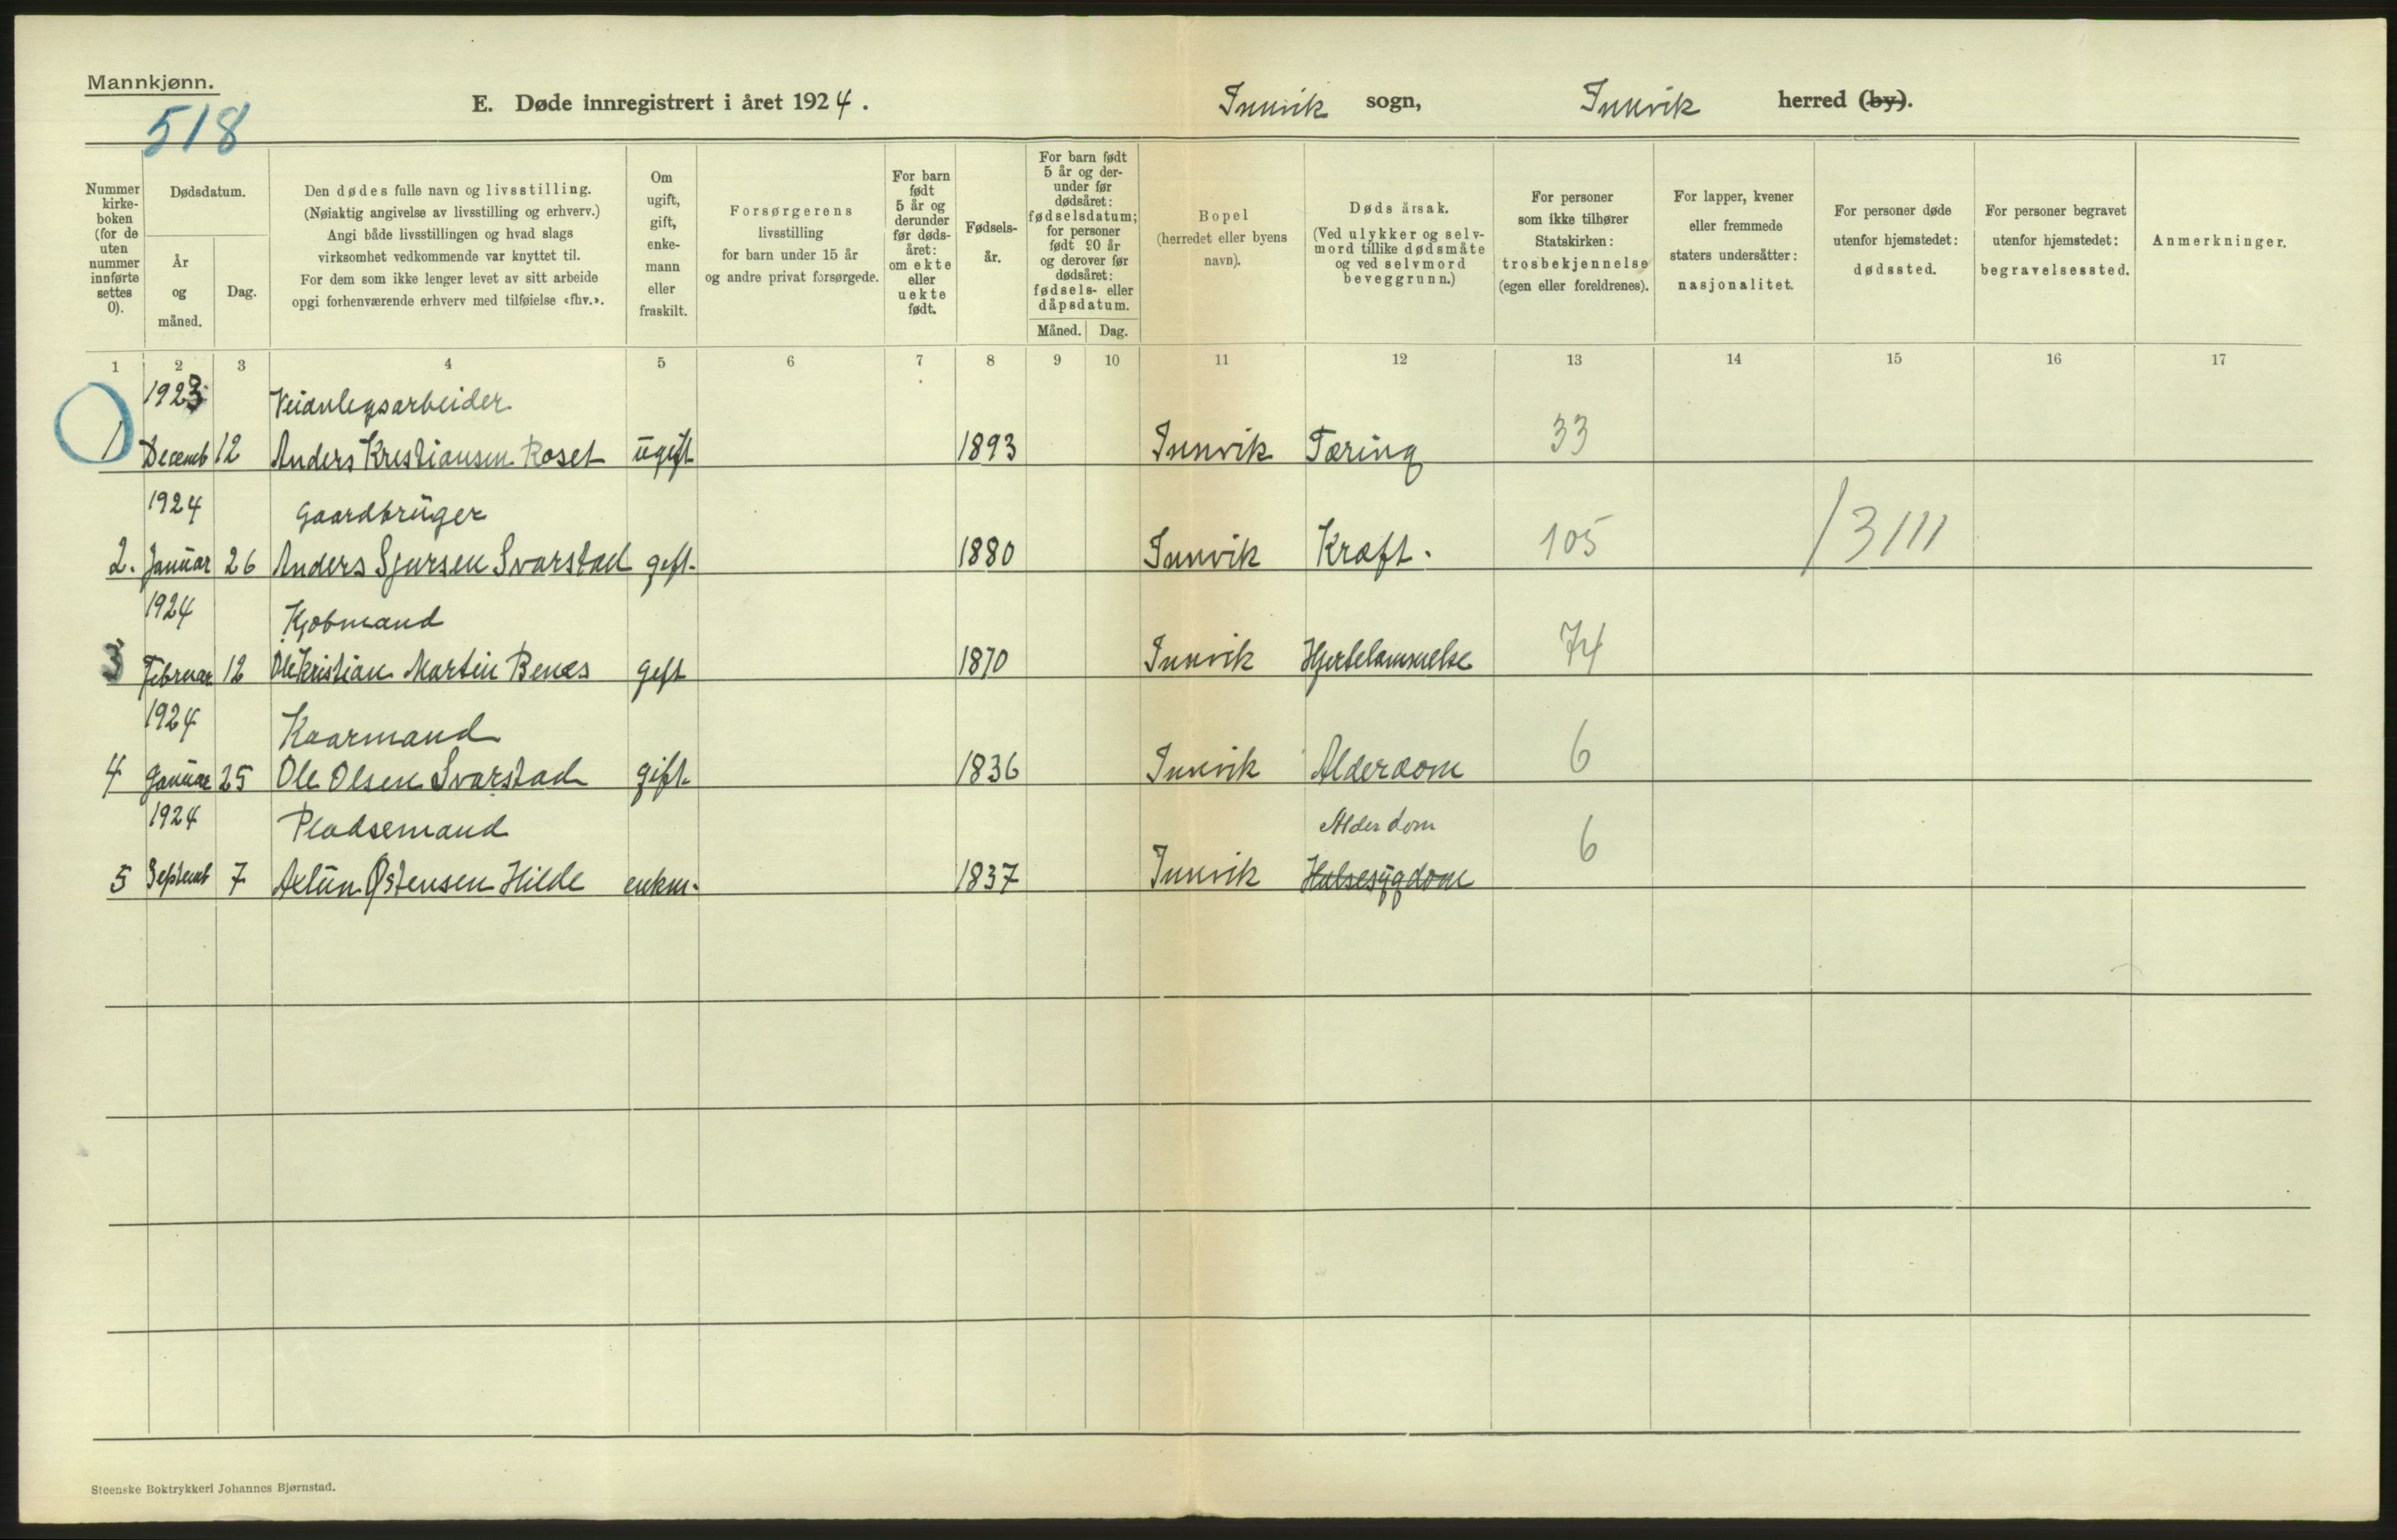 Mannkjønn.
518
E. Døde innregistrert i året 1924.
Innvik sogn, Innvik herred (by).
Nummer
kirke-
boken
(for de
uten
nummer
innførte
settes
0).
Dødsdatum.
År
og
måned.
Dag.
Den dødes fulle navn og livsstilling.
(Nøiaktig angivelse av livsstilling og erhverv.)
Angi både livsstillingen og hvad slags
virksomhet vedkommende var knyttet til.
For dem som ikke lenger levet av sitt arbeide
opgi forhenværende erhverv med tilføielse «fhv.».
Om
ugift,
gift,
enke-
mann
eller
fraskilt.
Forsørgerens
livsstilling
for barn under 15 år
og andre privat forsørgede.
For barn
født
5 år og
derunder
før døds-
året:
om ekte
eller
uekte
født.
Fødsels-
år.
For barn født
5 år og der-
under før
dødsåret:
fødselsdatum;
for personer
født 90 år
og derover før
dødsåret:
fødsels- eller
dåpsdatum.
Måned. Dag.
Bopel
(herredet eller byens
navn).
Døds årsak.
(Ved ulykker og selv-
mord tillike dødsmåte
og ved selvmord
beveggrunn.)
For personer
som ikke tilhører
Statskirken:
trosbekjennelse
(egen eller foreldrenes).
For lapper, kvener
eller fremmede
staters undersåtter:
nasjonalitet.
For personer døde
utenfor hjemstedet:
dødssted.
For personer begravet
utenfor hjemstedet:
begravelsessted.
Anmerkninger.
1 2 3 4 5 6 7 8 9 10 11 12 13 14 15 16 17
1923 Veianlegsarbeider
1 Decemb 12 Anders Kristiansen Roset ugift 1893 Innvik Tæring 33
1924 Gaardbruger
2. Januar 26 Anders Sjursen Svarstad gift. 1880 Innvik Kræft. 105 /3111
1924 Kjøbmand
3 Februar 12 Ole Kristian Martin Benes gift 1870 Innvik Hjertelammelse 74
1924 Kaarmand
4 Januar 25 Ole Olsen Svarstad gift. 1836 Innvik Alderdom 6
1924 Pladsemand Alderdom
5 Septemb 7 Østensen Hilde enkm. 1837 Innvik Halsesygdom 6
Steenske Boktrykkeri Johannes Bjørnstad.